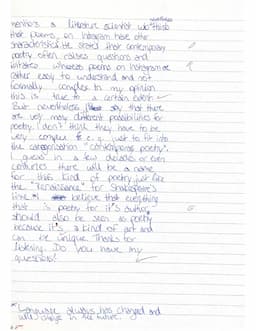 mentions a literature scientist who thinks
that poems on Instagram have other
characteristics. He stated that contemporary
poetry often raises questions and
irritates whereas poems on Instagram are
rather easy to understand and not
formally complex to my opinion
this is true to a certain extent.
But nevertheless I say that there
are very many different possibilities for
poetry. I don't think they have to be
very complex to e.g. just to fit into
the categorisation "contemporary poetry".
I guess in a few decades or even
centuries there will be a name
for this kind of poetry just like
the "Renaissance" for Shakespeare's
time.* I believe that everything
that is poetry for it's author
should also be seen as poetry
because it's a kind of art and
can be unique. Thanks for
listening. Do you have any
questions?
*Language always has changed and
will change in the future.